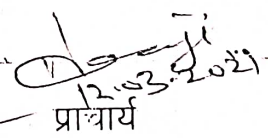 12.03.2021
प्राचार्य